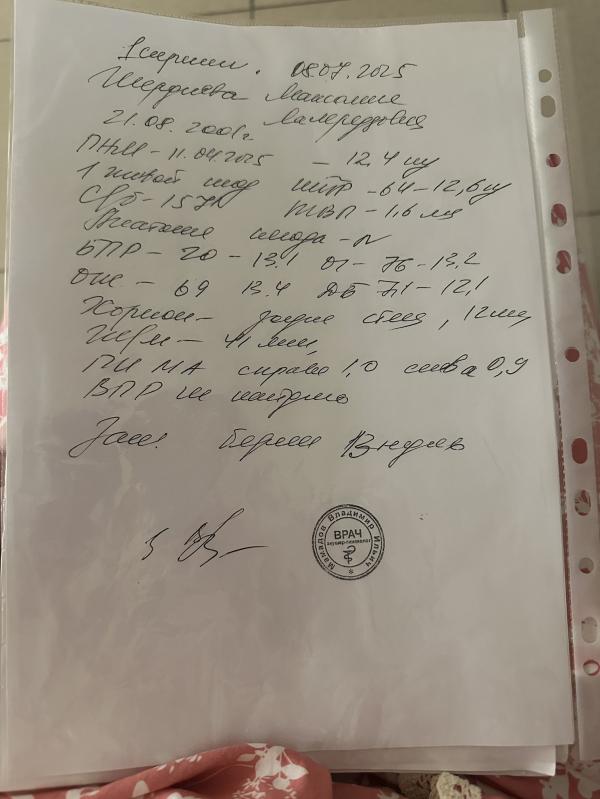 1 скрининг. 08.07.2025
21.08.2001г
ПНМ - 11.04.2025 - 12,4 нд
1 живой плод КТР - 64 - 12,6 нд
СЧБ - 157 ТВП - 1,6 мм
Анатомия плода - N
БПР - 20 - 13.1 ОГ - 76 - 13.2
ОЖ - 69 13.4 ДБ 7.1 - 12,1
Хорион - задняя стенка, 12 мм
41 мм,
ПИ МА справа 1,0 слева 0,9
ВПР не найдено
Закл. Берем 13 недель
Мамадов Владимир Ильич
ВРАЧ
акушер-гинеколог